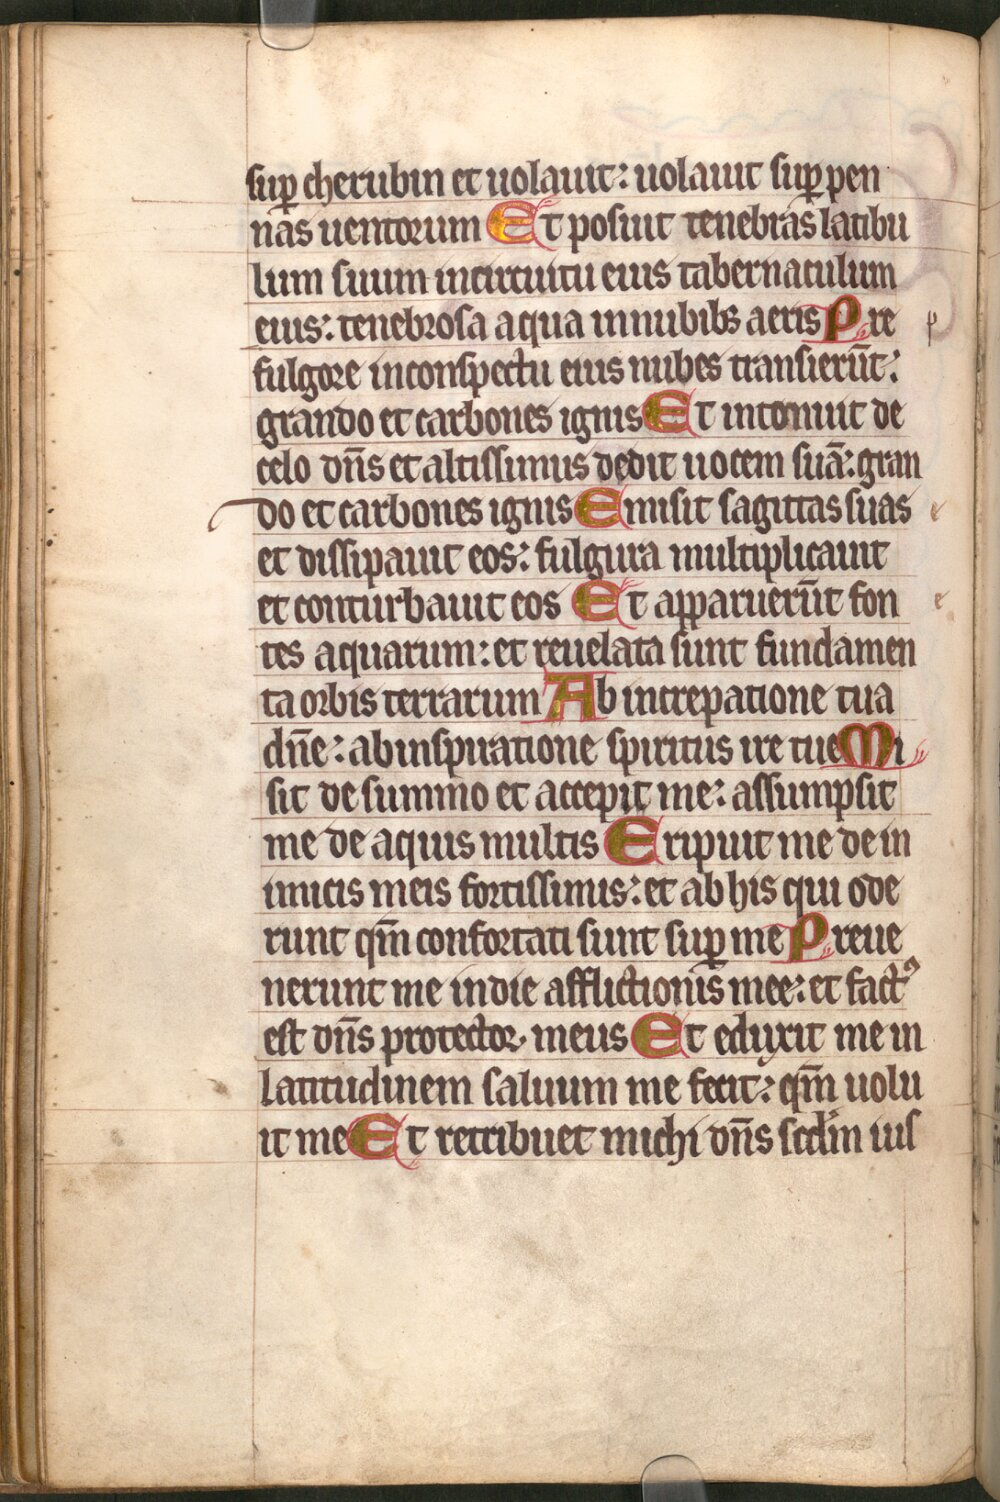 sup̱ cherubin et uolauit: uolauit sup̱ pen
nas uentorum Et posuit tenebras latibu
lum suum incircuitu eius tabernaculum
eius: tenebrosa aqua innubibꝫ aeris Pre
fulgore inconspectu eius nubes transierūt:
grando et carbones ignis Et intonuit de
celo dn̄s et altissimus dedit uocem suā: gran
do et carbones ignis Emisit sagittas suas
et dissipauit eos: fulgura multiplicauit
et conturbauit eos Et apparuerūt fon
tes aquarum: et reuelata sunt fundamen
ta orbis terrarum Ab increpatione tua
dn̄e: abinspiratione spiritus ire tue Mi
sit de summo et accepit me: assumpsit
me de aquis multis Eripuit me de in
imicis meis fortissimis: et ab his qui ode
runt qm̄ confortati sunt sup̱ me Preue
nerunt me indie afflictionis mee: et factꝰ
est dn̄s protector meus Et eduxit me in
latitudinem saluum me fecit: qm̄ uolu
it me Et retribuet michi dn̄s scdm̄ ius